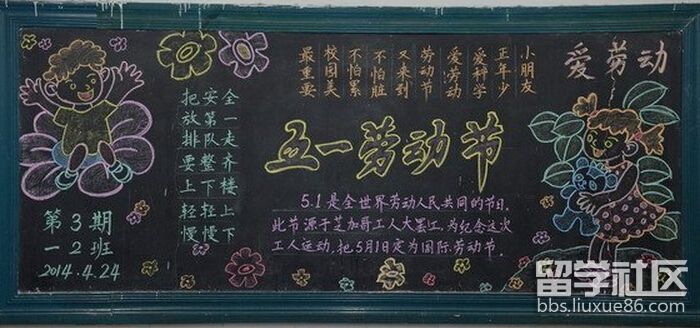 爱劳动
小朋友
正年少
爱科学
爱劳动
劳动节
又来到
不怕脏
不怕累
校园美
最重要
把安全
放第一
排队走
要整齐
上下楼
轻轻上
慢慢下
五一劳动节
5.1是全世界劳动人民共同的节日.
此节源于芝加哥工人大罢工,为纪念这次
工人运动,把5月1日定为国际劳动节.
第3期
一2班
2014.4.24
留学社区
bbs.liuxue86.com